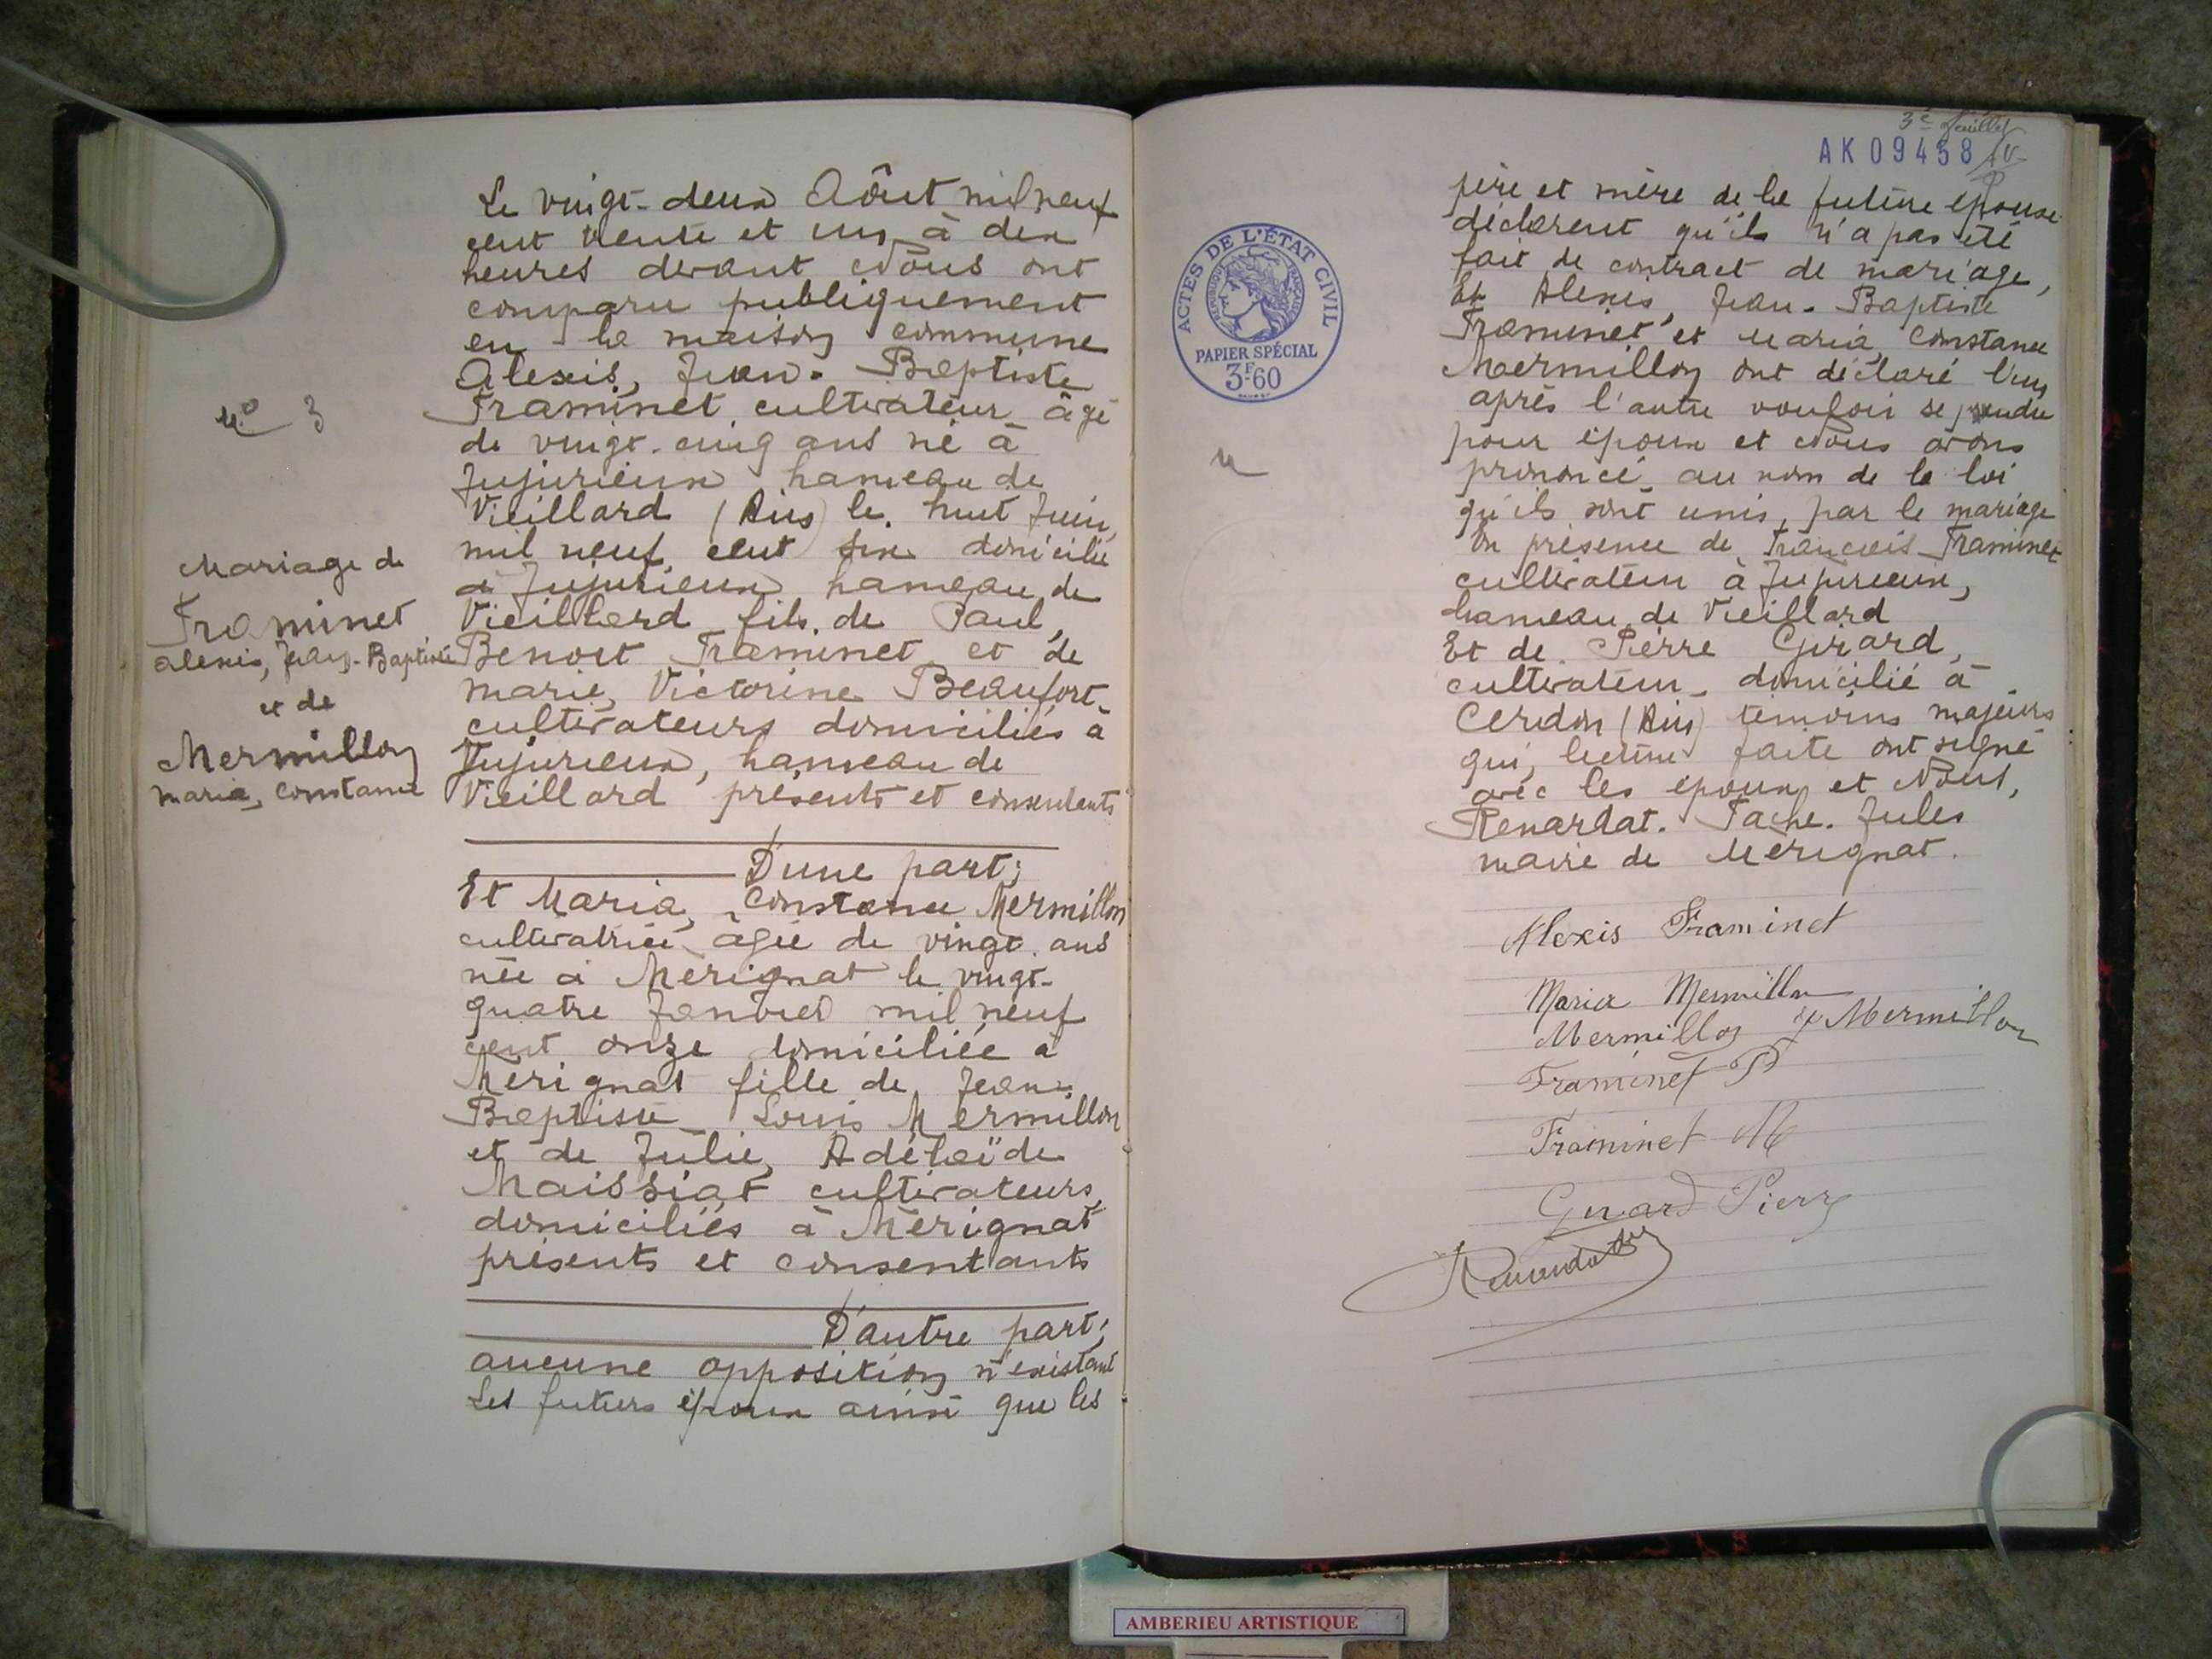 N° 3
Mariage de
Framinet
Alexis, Jean-Baptiste
et de
Mermillon
Maria, Constance
Le vingt-deux Aôut mil neuf
cent trente et un à dix
heures devant Nous ont
comparu publiquement
en la maison commune
Alexis, Jean-Baptiste
Framinet cultivateur âgé
de vingt-cinq ans né à
Jujurieux hameau de
Vieillard (Ain) le huit Juin
mil neuf cent six domicilié
à Jujurieux hameau de
Vieillard fils de Paul,
Benoit Framinet et de
Marie, Victorine Beaufort
cultivateurs domiciliés à
Jujurieux, hameau de
Vieillard présents et consentants
D'une part;
Et Maria, Constance Mermillon
cultivatrice âgée de vingt ans
née à Mérignat le vingt-
quatre Janvier mil neuf
cent onze domiciliée à
Mérignat fille de Jean-
Baptiste Louis Mermillon
et de Julie, Adélaïde
Maissiat cultivateurs
domiciliés à Mérignat
présents et consentants
D'autre part;
aucune opposition n'existant
Les futurs époux ainsi que les
3e feuillet
AK 09458
ACTES DE L'ÉTAT CIVIL
RÉPUBLIQUE FRANÇAISE
PAPIER SPÉCIAL
3F60
père et mère de la future épouse
déclarent qu'ils n'a pas été
fait de contract de mariage,
Et Alexis, Jean-Baptiste
Framinet et Maria, Constance
Mermillon ont déclaré l'un
après l'autre vouloir se prendre
pour époux et Nous avons
prononcé au nom de la loi
qu'ils sont unis par le mariage
En présence de François Framinet
cultivateur à Jujurieux,
hameau de Vieillard
Et de Pierre Girard,
cultivateur domicilié à
Cerdon (Ain) témoins majeurs
qui, lecture faite ont signé
avec les époux et Nous,
Renardat. Fache. Jules
maire de Mérignat.
Alexis Framinet
Maria Mermillon
Mermillon Mermillon
Framinet P
Framinet M
Girard Pierre